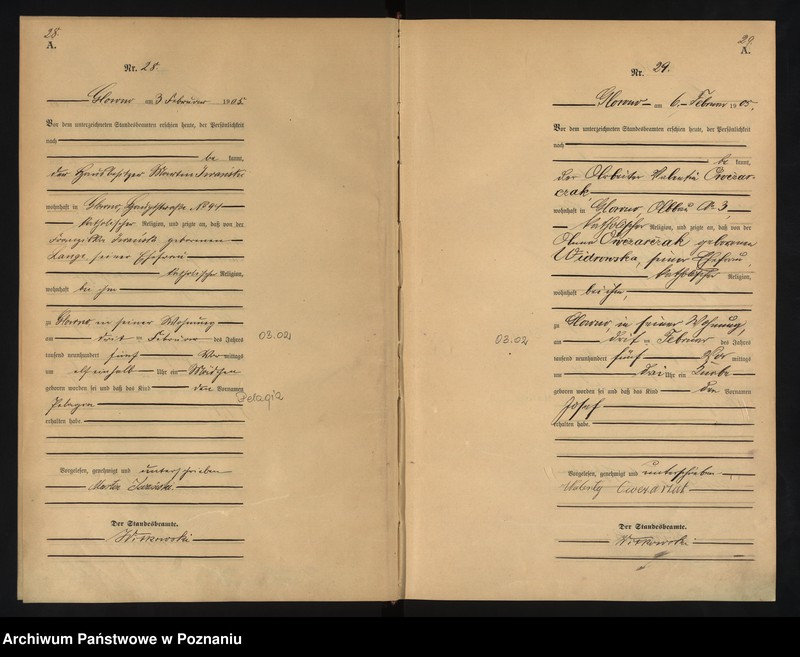 28.
A.
Nr. 28.
Glowno am 3 Februar 1905.
Vor dem unterzeichneten Standesbeamten erschien heute, der Persönlichkeit
nach
be kannt,
der
wohnhaft in Glowno, Hauptstraße N 44
katholischer Religion, und zeigte an, daß von der
geborenen
Lange, seiner Ehefrau
katholischer Religion,
wohnhaft bei ihm
zu Glowno in seiner Wohnung
am drit ten Februar des Jahres
tausend neunhundert fünf Vor mittags
um elfeinhalb Uhr ein Mädchen
geboren worden sei und daß das Kind den Vornamen
Pelagia
erhalten habe.
03.02
Pelagia
Vorgelesen, genehmigt und unterschrieben
Der Standesbeamte.
Witkowski
29.
A.
Nr. 29.
Glowno am 6. Februar 1905.
Vor dem unterzeichneten Standesbeamten erschien heute, der Persönlichkeit
nach
be kannt,
der Arbeiter Valentin Owczar-
czak
wohnhaft in Glowno, Abbau No 3
katholischer Religion, und zeigte an, daß von der
Anna Owczarczak geborenen
Widrowska, seiner Ehefrau,
katholischer Religion,
wohnhaft bei ihm,
zu Glowno, in seiner Wohnung,
am drit ten Februar des Jahres
tausend neunhundert fünf Vor mittags
um drei Uhr ein Knabe
geboren worden sei und daß das Kind den Vornamen
Josef
erhalten habe.
03.02
Vorgelesen, genehmigt und unterschrieben
Walenty
Der Standesbeamte.
Witkowski
Archiwum Państwowe w Poznaniu